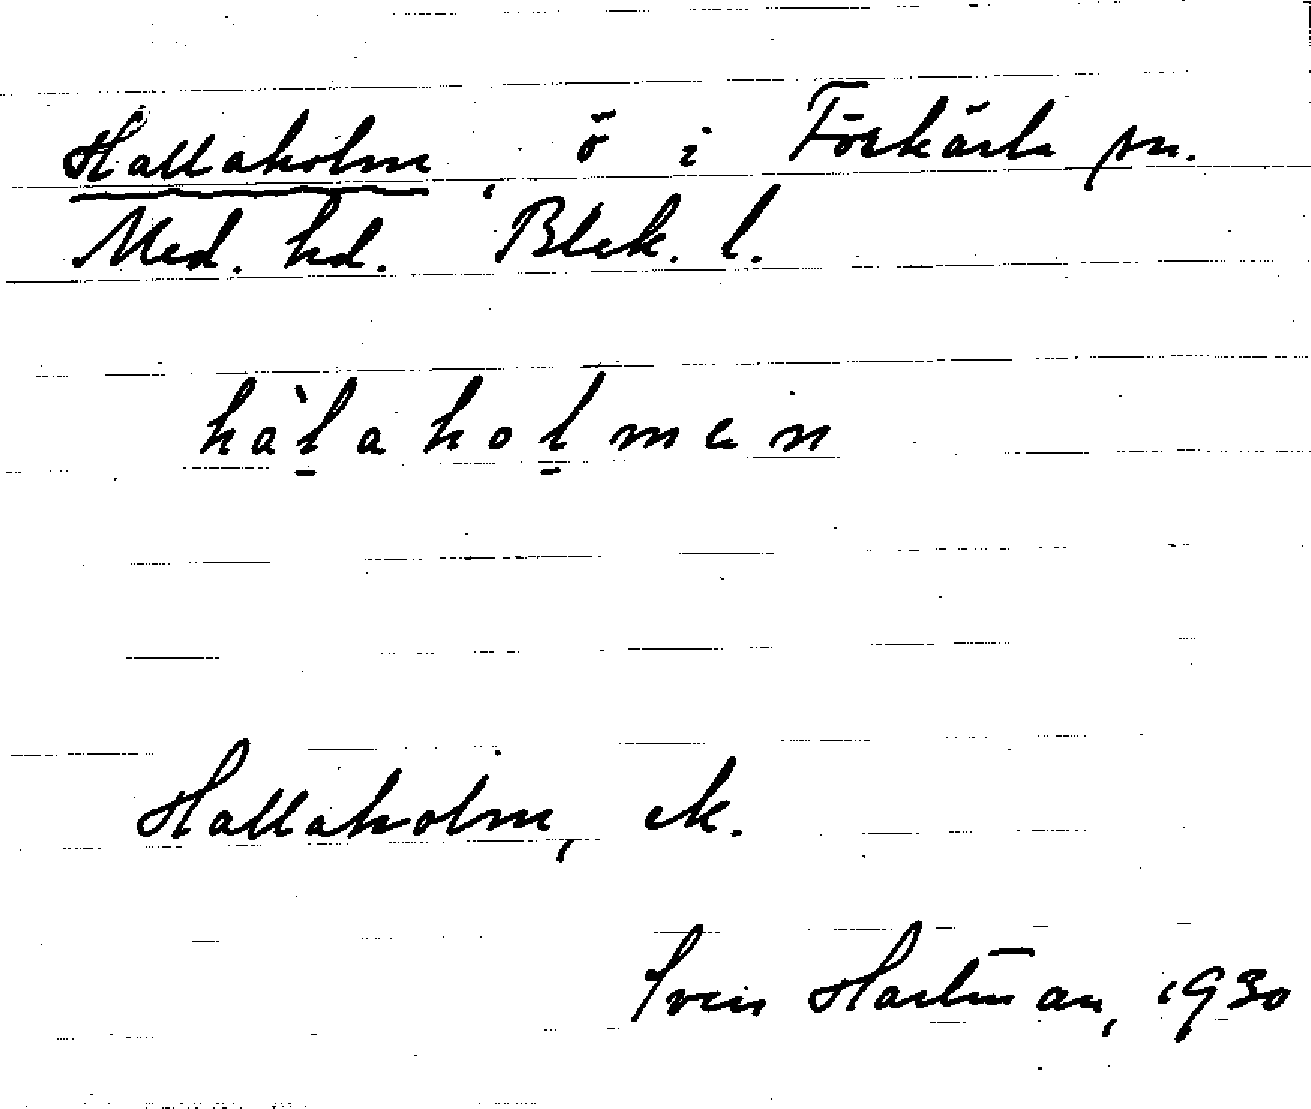 Hallaholm, ö i Förkärla sn.
Med. hd. Blek. l.
hàl̠ahol̠men
Hallaholm, ek.
Sven Hartman, 1930